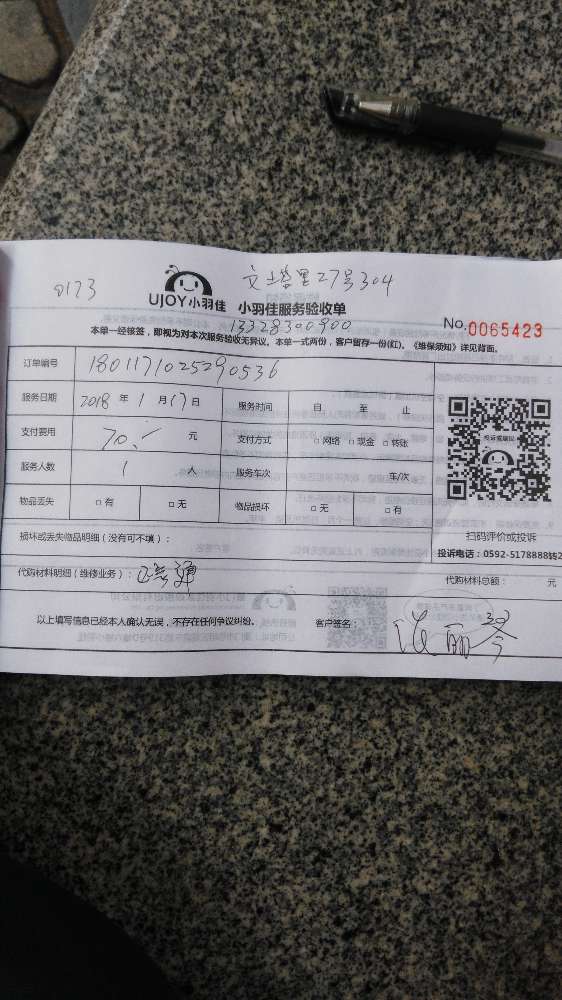 0173
文土塔里27号304
UJOY小羽佳 小羽佳服务验收单
13328300900
No.0065423
本单一经接签,即视为对本次服务验收无异议。本单一式两份,客户留存一份(红)。《维保须知》详见背面。
订单编号 1801171025290536
服务日期 2018 年 1 月 17 日 服务时间 自 至 止
支付费用 70.- 元 支付方式 □网络 □现金 □转账
服务人数 1 人 服务车次 车/次
物品丢失 □有 □无 物品损坏 □无 □有
损坏或丢失物品明细(没有可不填):
扫码评价或投诉
投诉电话:0592-5178888转2
代购材料明细(维修业务):
代购材料总额: 元
以上填写信息已经本人确认无误,不存在任何争议纠纷。 客户签名: